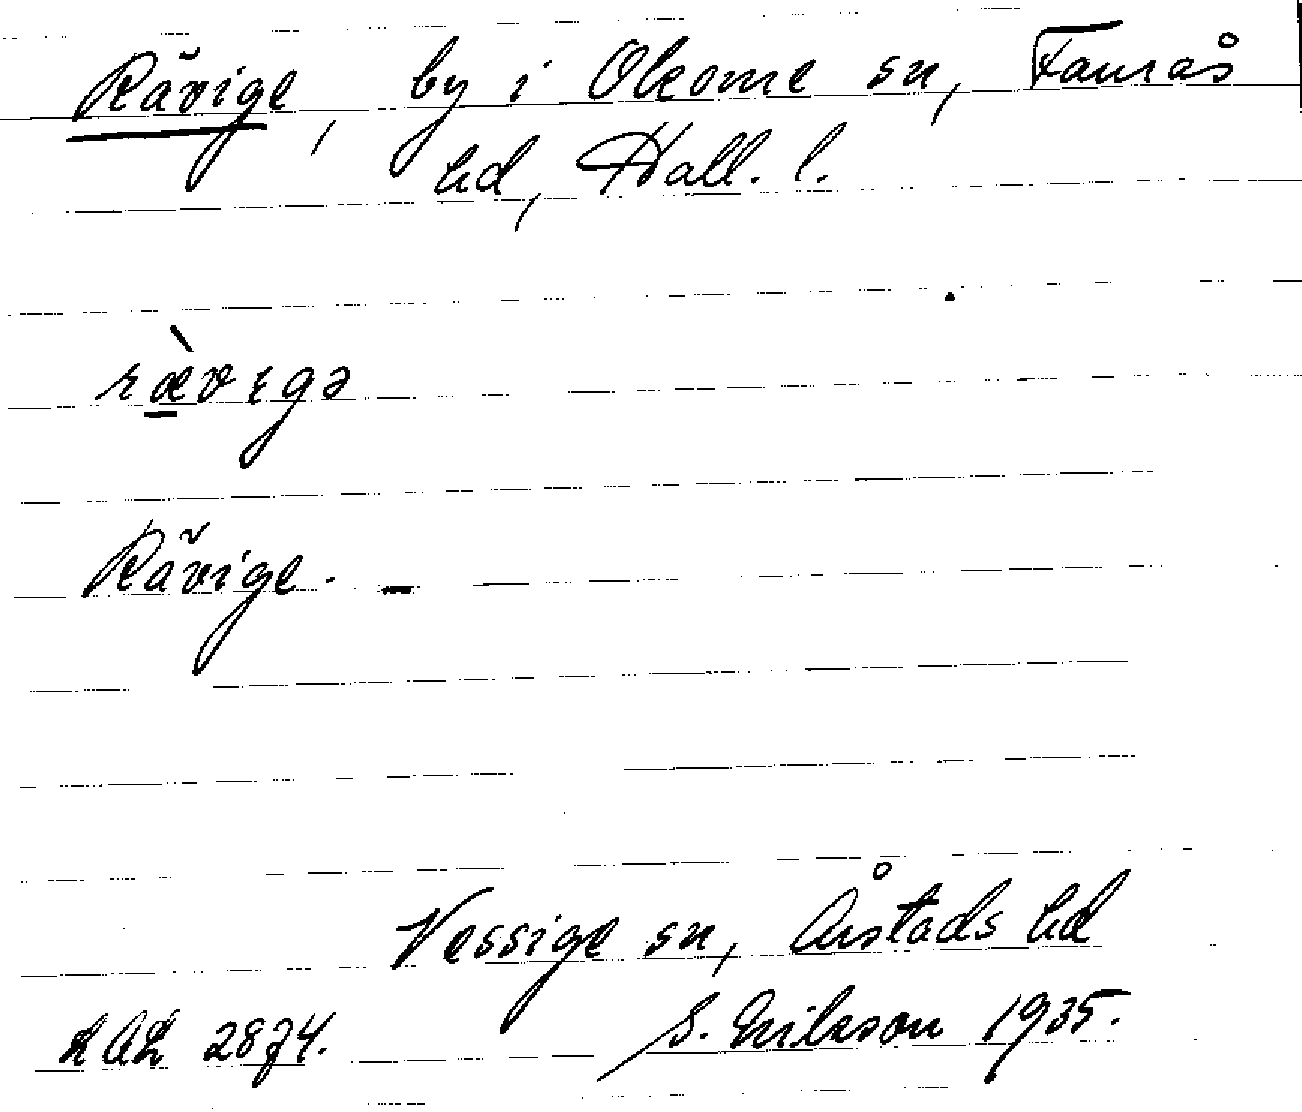 Rävige, by i Okome sn, Faurås
hd, Hall. l.
ræ̀vıgə
Rävige. -
Vessige sn, Årstads hd
LAL 2874. S. Erikson 1935.